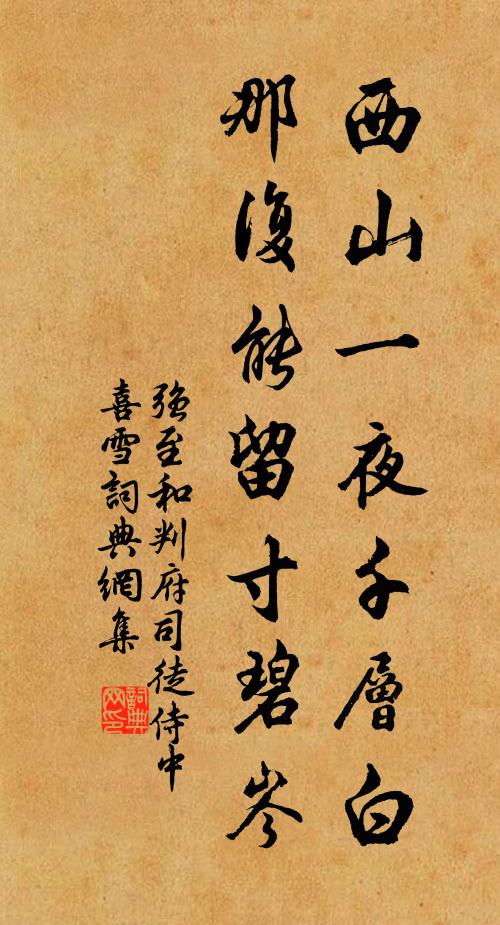 西山一夜千層白
那復能留寸碧岑
強至和判府司徒侍中
喜雪詞典網集
詞典网印